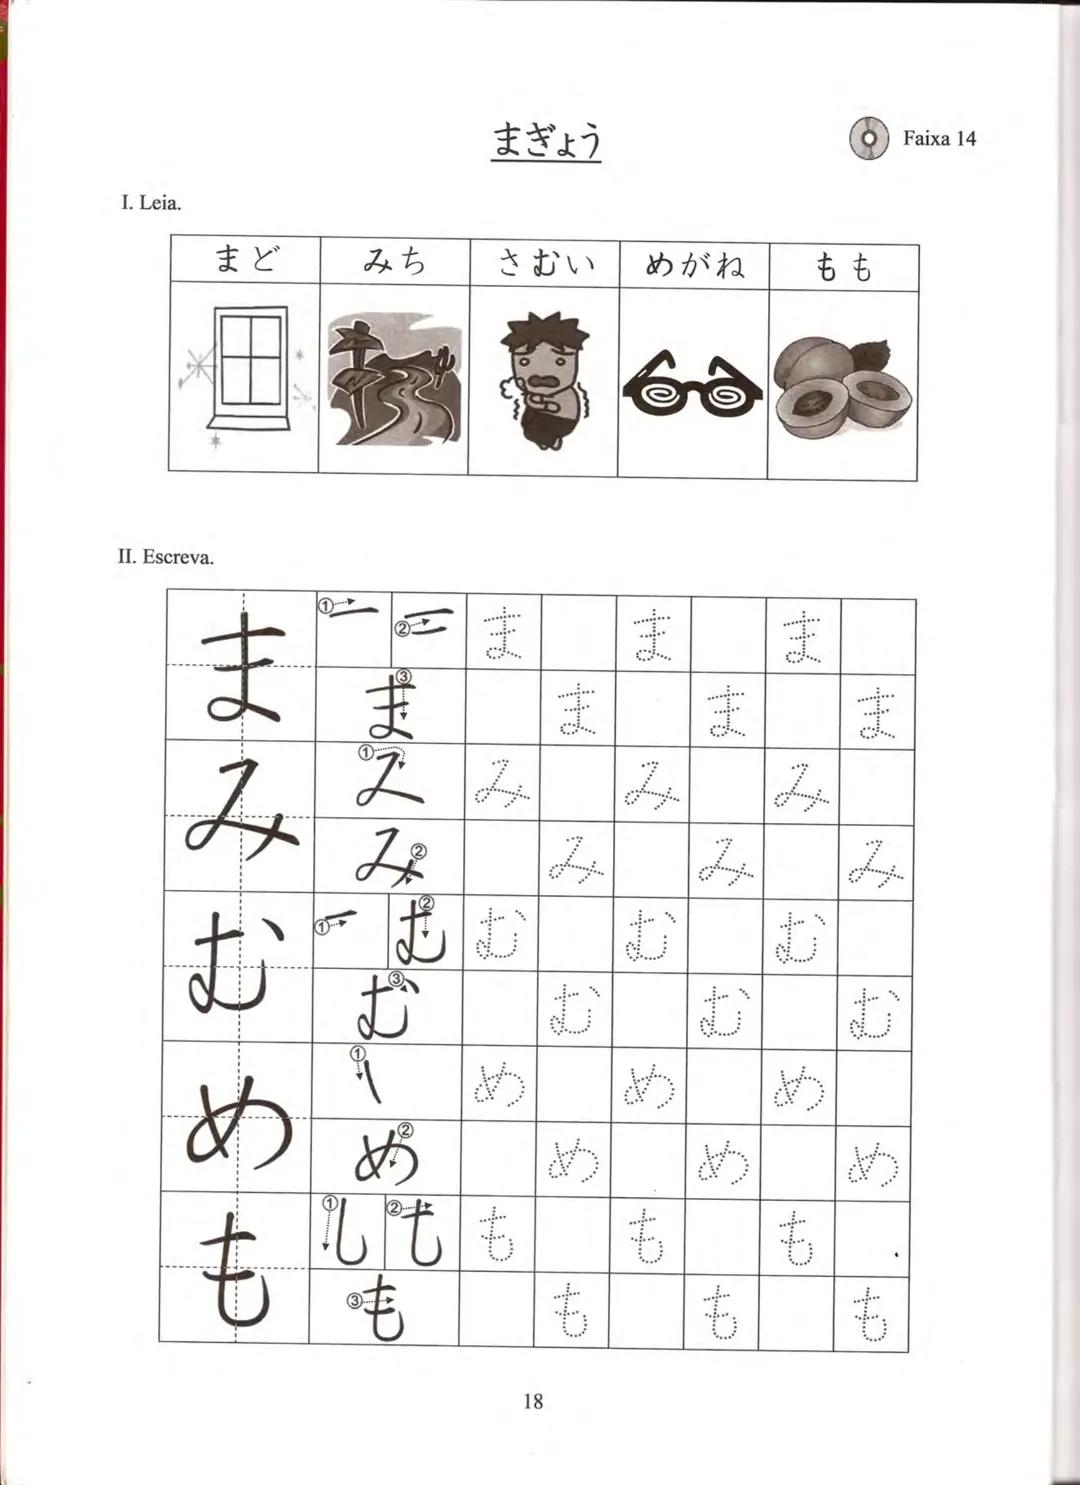 まぎょう
Faixa 14
I. Leia.
まど みち さむい めがね もも
II. Escreva.
ま ① ② ま ま ま
③ ま ま ま ま
み ① み み み
② み み み み
む ① ② む む む む
③ む む む む
め ① め め め
② め め め め
も ① ② も も も
③ も も も も
18